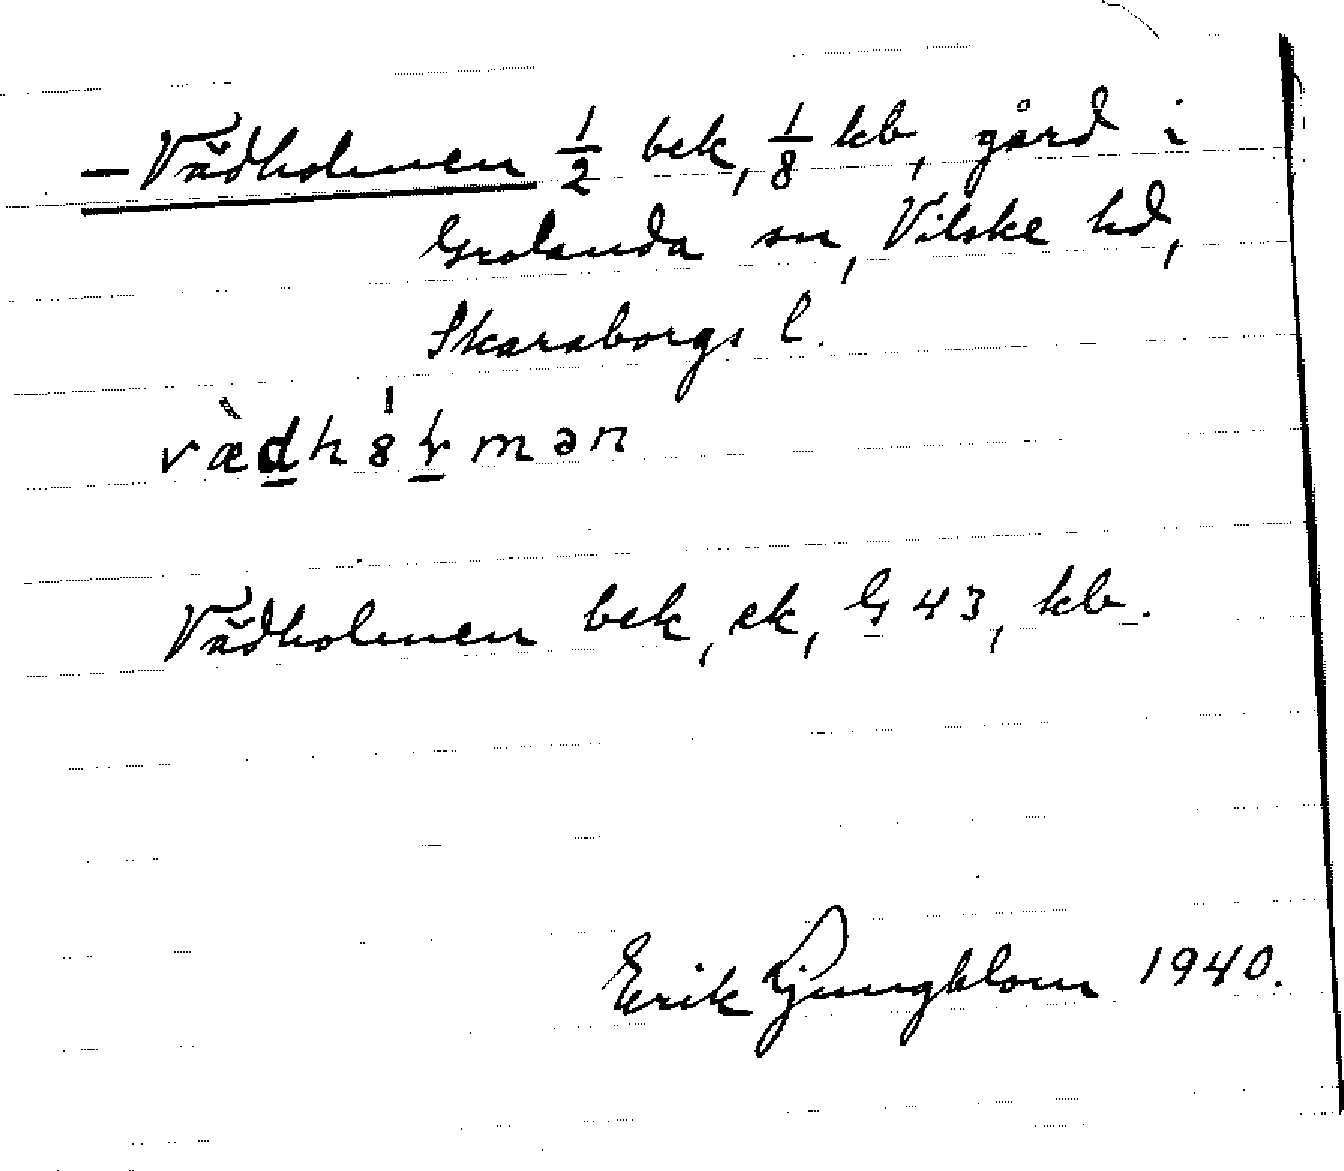 – Vädholmen 1/2 bek, 1/8 kb, gård i
Grolanda sn, Vilske hd,
Skaraborgs l.
Vädholmen bek, ek, G 43, kb.
Erik Ljungblom 1940.